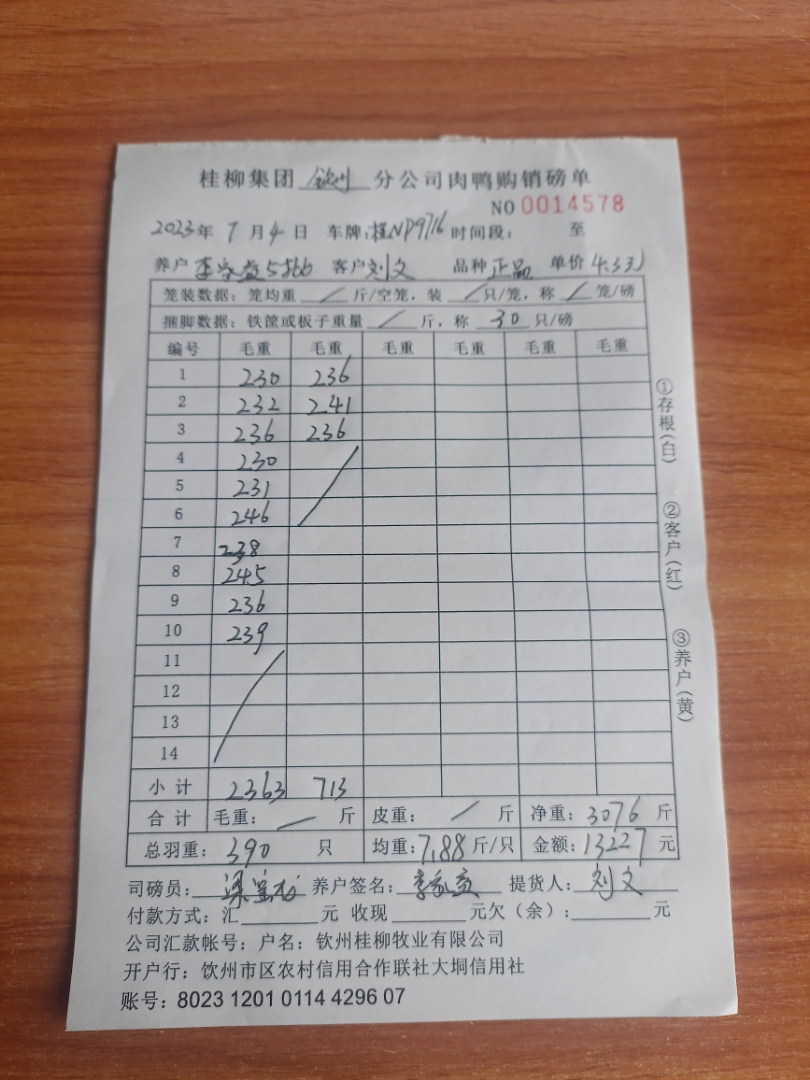 桂柳集团 钦州 分公司肉鸭购销磅单
NO 0014578
2023年 7月4日 车牌:桂NP9716 时间段: 至
养户 李家益5366 客户 刘文 品种 正品 单价 4.3元
笼装数据: 笼均重 / 斤/空笼, 装 / 只/笼, 称 / 笼/磅
捆脚数据: 铁筐或板子重量 / 斤, 称 30 只/磅
编号 毛重 毛重 毛重 毛重 毛重 毛重
1 230 236
2 232 241
3 236 236
4 230
5 231
6 246
7 238
8 245
9 236
10 239
11
12
13
14
小计 2363 713
合计 毛重: — 斤 皮重: / 斤 净重: 3076 斤
总羽重: 390 只 均重: 7.88 斤/只 金额: 13227 元
司磅员: 养户签名: 李家益 提货人: 刘文
付款方式: 汇 元 收现 元欠(余): 元
公司汇款帐号: 户名: 钦州桂柳牧业有限公司
开户行: 钦州市区农村信用合作联社大垌信用社
账号: 8023 1201 0114 4296 07
①存根(白)
②客户(红)
③养户(黄)